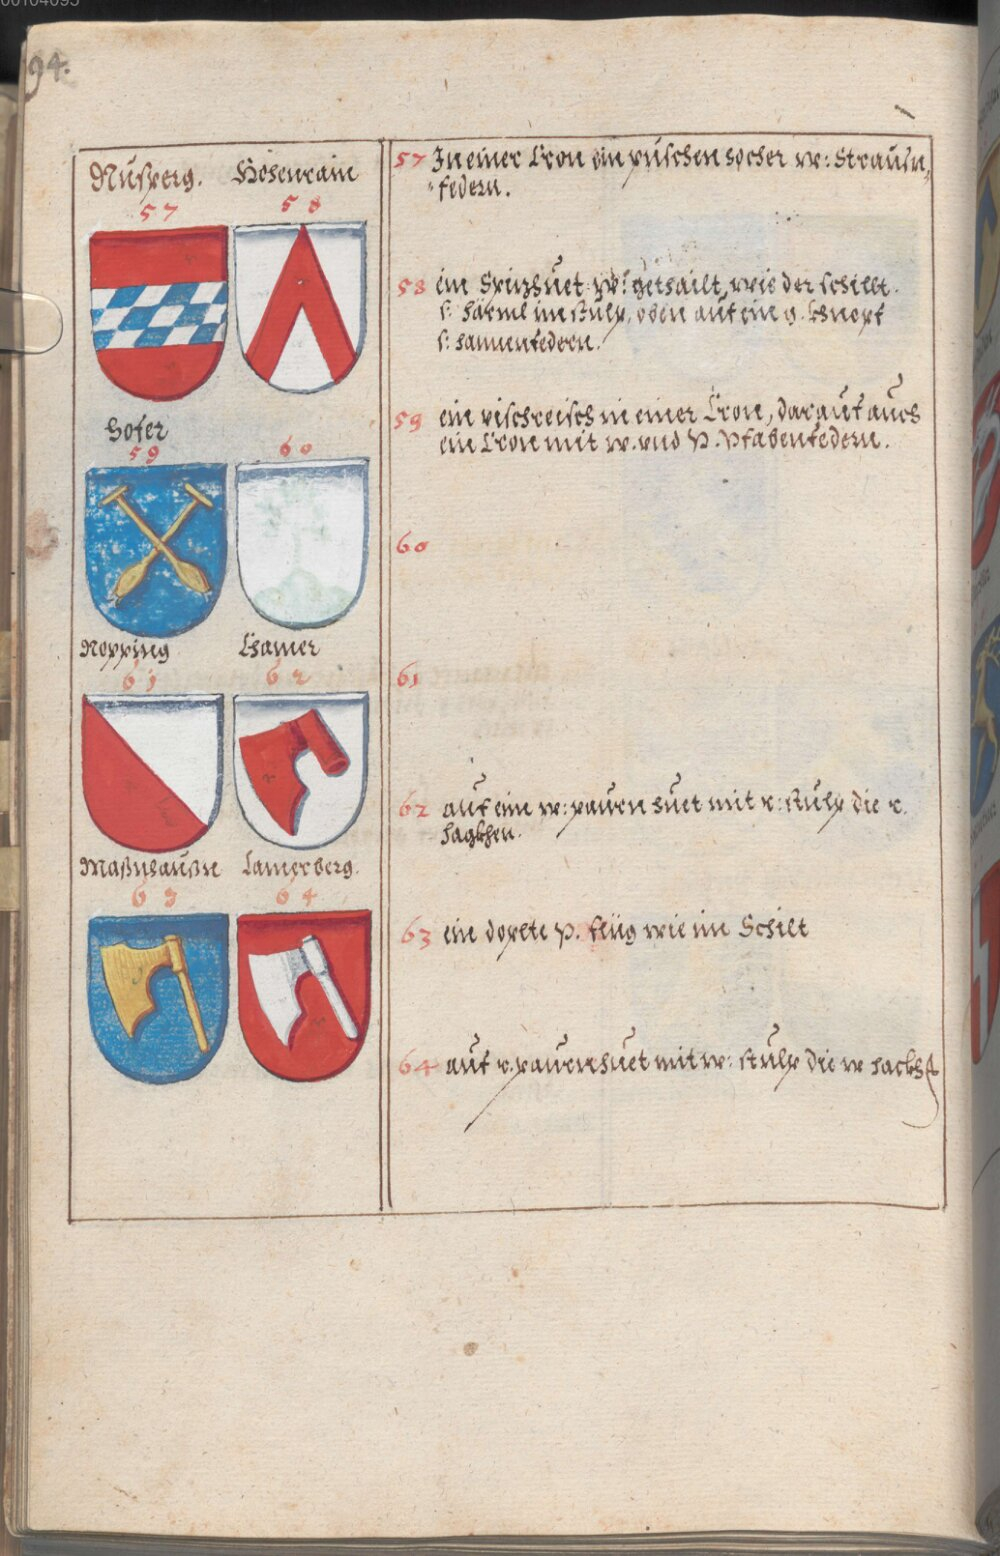 00104095
94.
Nußperg. Hohenrain
57 58
Hofer
59 60
Nopping Chamer
61 62
Maßnhaußn Lamerberg.
63 64
57 In einer Cron ein puschen hocher w: Straußn,
federn.
58 ein Spizhuet w: gethailt, wie der schilt.
h: härml im Stulp, oben auf ein g. khnopf
h: hannenfedern.
59 ein vischreisch in einer Cron, darauf auch
ein Cron mit w. vnd p. Pfabenfedern.
60
61
62 auf ein w: pauren huet mit r: stulp die r.
hagkhen.
63 ein dopete p. flüg wie im Schilt
64 auf r. paurnhuet mit w: stulp die w hackh